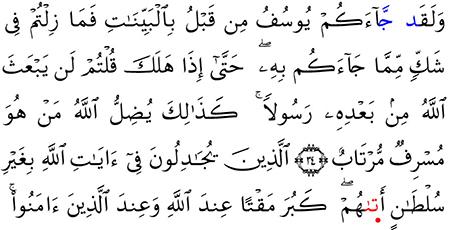 وَلَقَد جَّآءَكُمْ يُوسُفُ مِن قَبْلُ بِالْبَيِّنَـٰتِ فَمَا زِلْتُمْ فِى
شَكٍّ مِّمَّا جَآءَكُم بِهِۦ ۖ حَتَّىٰٓ إِذَا هَلَكَ قُلْتُمْ لَن يَبْعَثَ
ٱللَّهُ مِنۢ بَعْدِهِۦ رَسُولًا ۚ كَذَٰلِكَ يُضِلُّ ٱللَّهُ مَنْ هُوَ
مُسْرِفٌ مُّرْتَابٌ ۝٣٤ ٱلَّذِينَ يُجَـٰدِلُونَ فِىٓ ءَايَـٰتِ ٱللَّهِ بِغَيْرِ
سُلْطَـٰنٍ أَتَىٰهُمْ ۖ كَبُرَ مَقْتًا عِندَ ٱللَّهِ وَعِندَ ٱلَّذِينَ ءَامَنُوا۟ ۚ